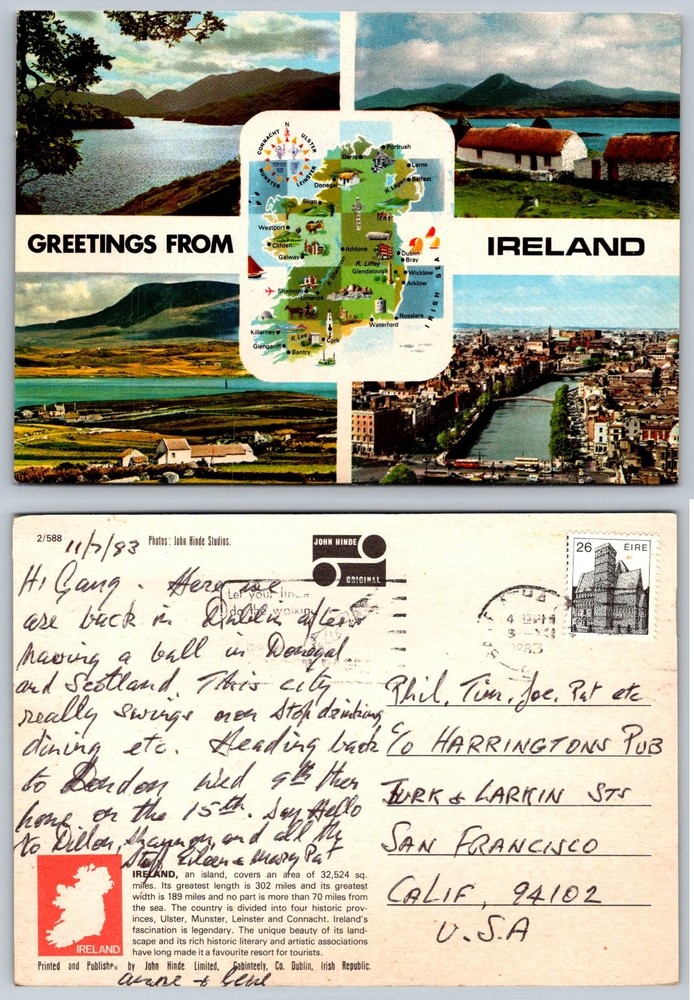 GREETINGS FROM
IRELAND
N
CONNACHT
ULSTER
MUNSTER
LEINSTER
Portrush
Derry
Larne
Donegal
R. Lagan
Belfast
Sligo
Westport
Clifden
Galway
Athlone
Dublin
Bray
R. Liffey
Glendalough
Wicklow
Arklow
IRISH SEA
Shannon
Limerick
Rosslare
Waterford
Killarney
R. Lee
Cork
Glengariff
Bantry
2/588
Photos: John Hinde Studios.
JOHN HINDE
ORIGINAL
26 EIRE
11/7/83
Hi Gang. Here we
are back in Dublin after
having a ball in Donegal
and Scotland This city
really swings non stop drinking,
dining etc. Heading back
to London Wed 9th then
home on the 15th. Say Hello
to Dillon, Shannon, and all the
Staff Eileen & Mary Pat
Let your
do the walking
1983
Phil, Tim, Joe, Pat etc
C/O HARRINGTONS PUB
TURK & LARKIN STS
SAN FRANCISCO
CALIF, 94102
U.S.A
IRELAND
IRELAND, an island, covers an area of 32,524 sq.
miles. Its greatest length is 302 miles and its greatest
width is 189 miles and no part is more than 70 miles from
the sea. The country is divided into four historic prov-
inces, Ulster, Munster, Leinster and Connacht. Ireland's
fascination is legendary. The unique beauty of its land-
scape and its rich historic literary and artistic associations
have long made it a favourite resort for tourists.
Printed and Published by John Hinde Limited, Cabinteely, Co. Dublin, Irish Republic.
+ Gene